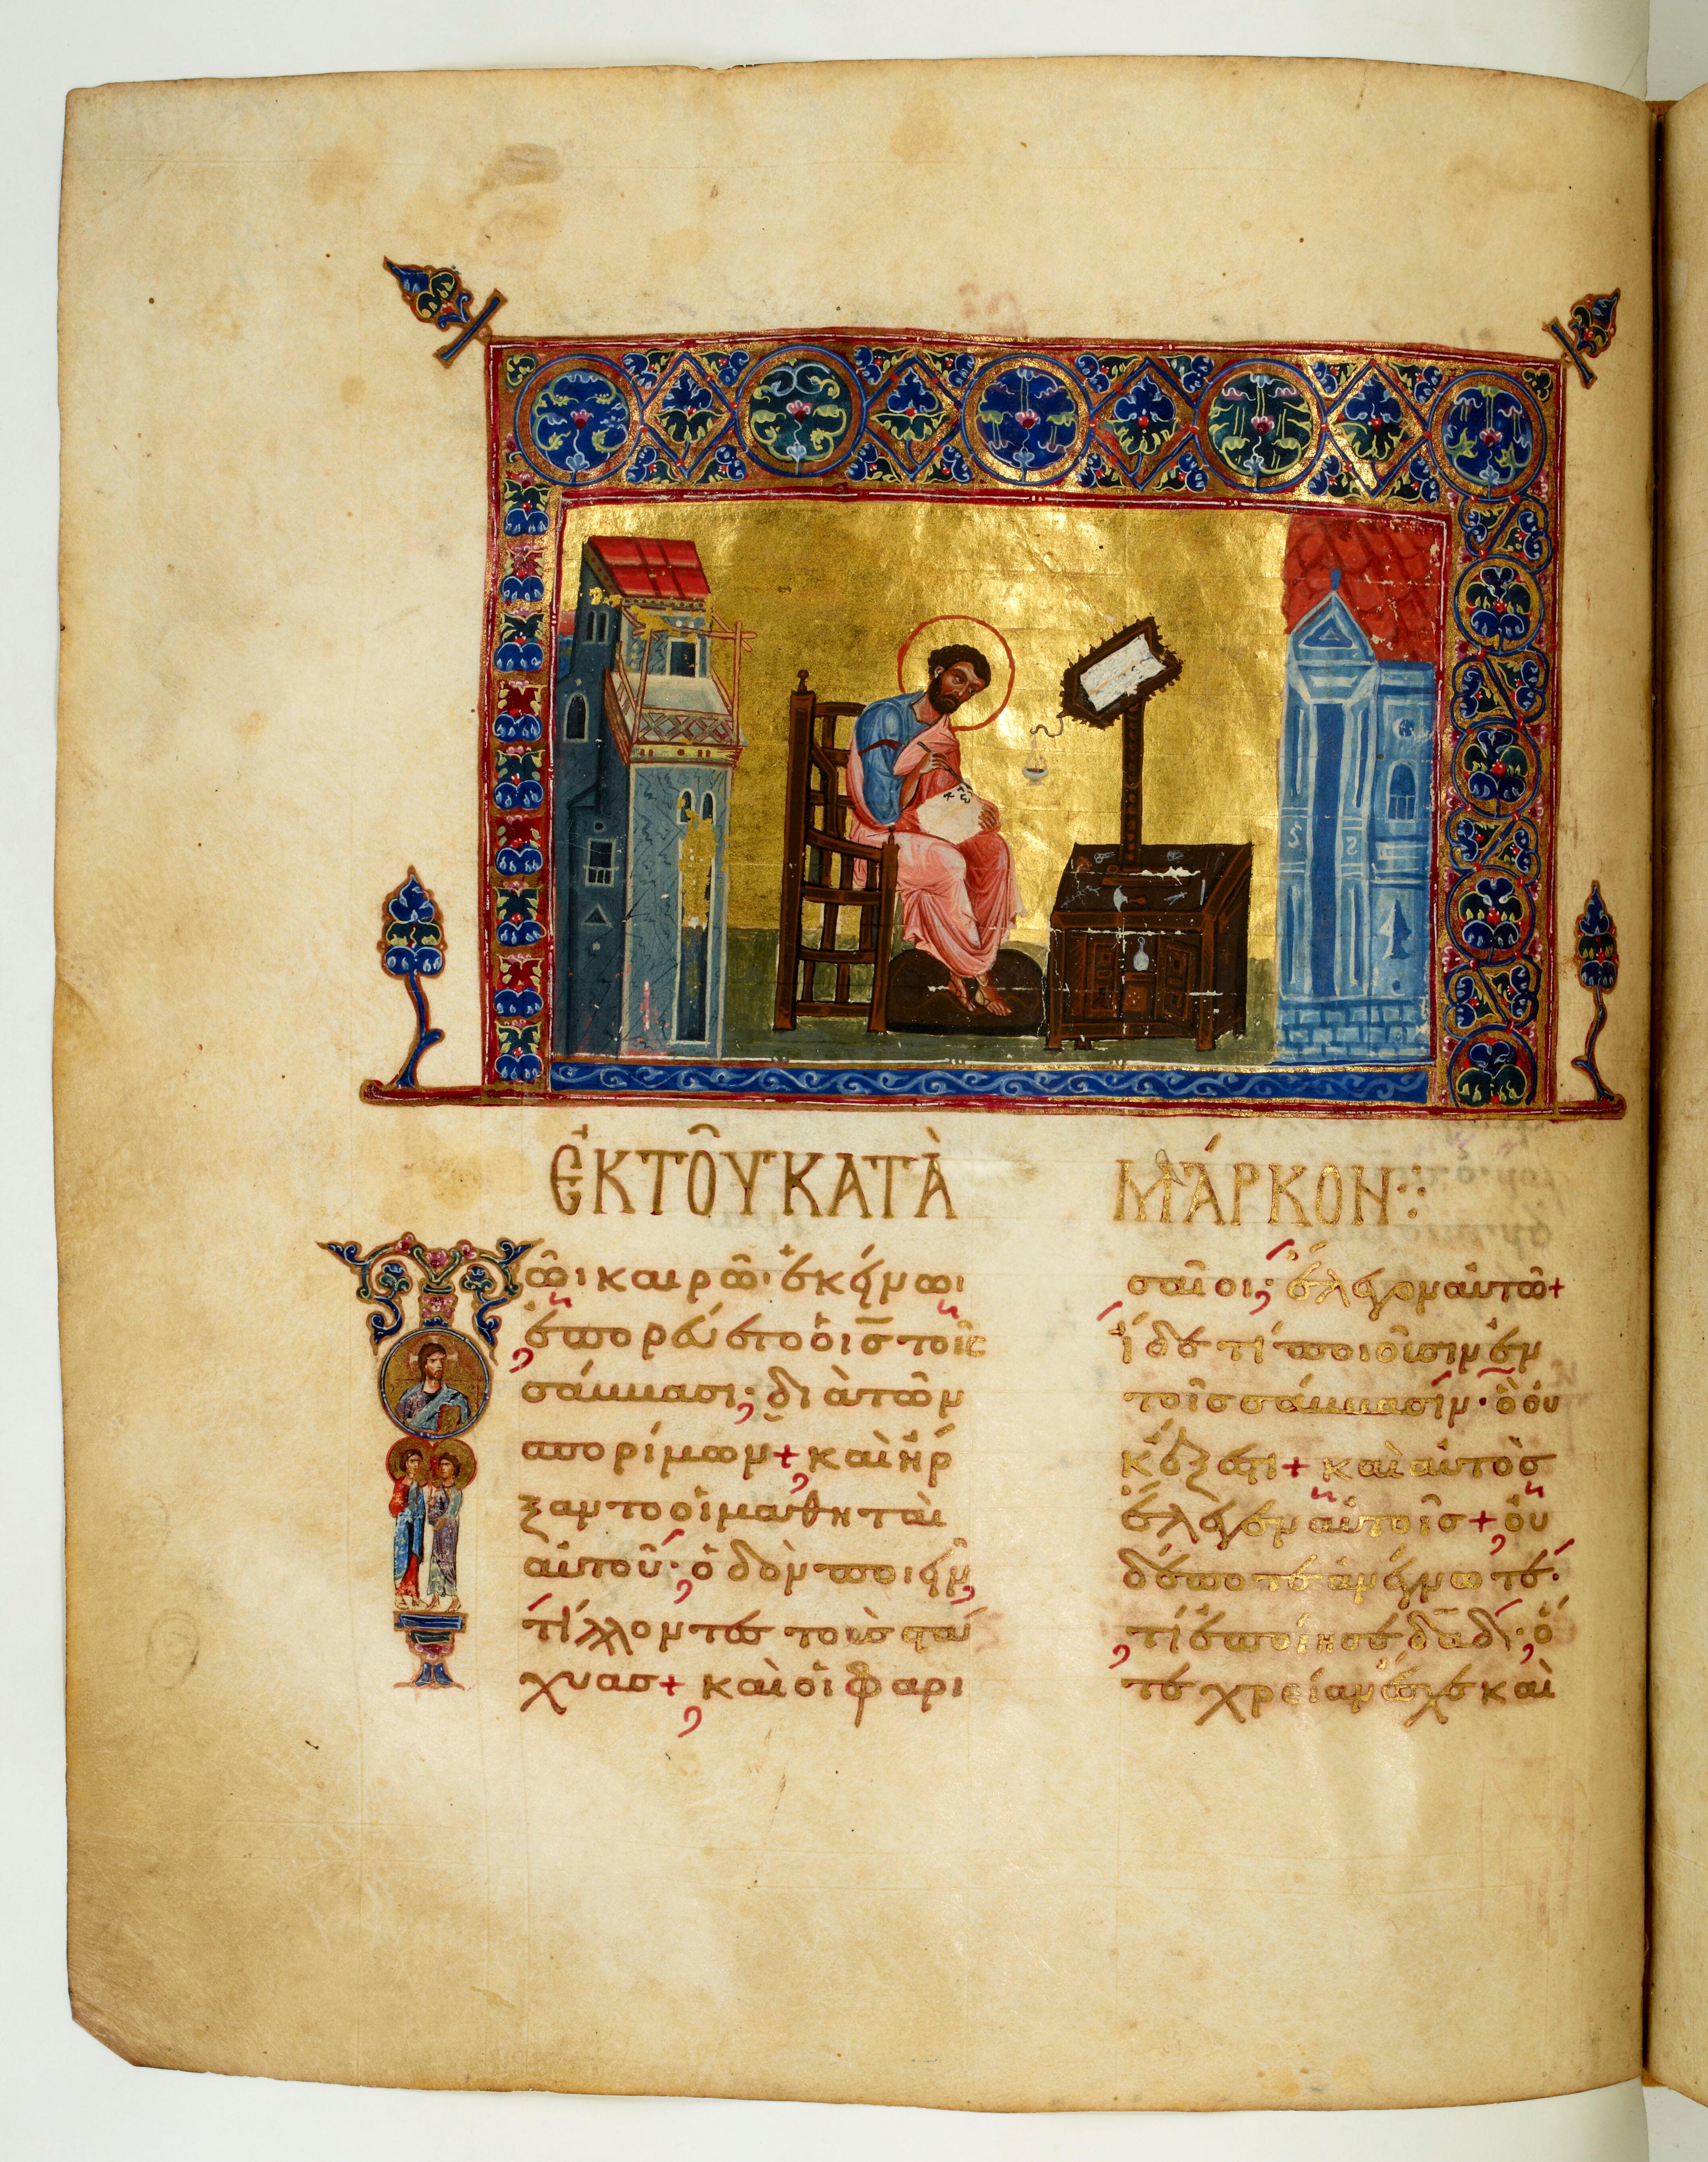 ἘΚ ΤΟῦ ΚΑΤᾺ ΜΆΡΚΟΝ
ῶι καιρῶι ἐκείνωι
ἐπορεύετο ὁ ις τοῖς
σάββασι· διὰ τῶν
σπορίμων + καὶ ἤρ
ξαντο οἱ μαθηταὶ
αὐτοῦ· ὁδὸν ποιεῖν
τίλλοντες τοὺς στά
χυας + καὶ οἱ φαρι
σαῖοι· ἔλεγον αὐτῶ +
ἴδε τί ποιοῦσιν ἐν
τοῖς σάββασίν· ὃ οὐ
κ ἔξεστι + καὶ αὐτὸς
ἔλεγεν αὐτοῖς + οὐ
δέποτε ἀνέγνωτέ·
τί ἐποίησε δαδ· ὅ
τε χρείαν ἔσχε καὶ